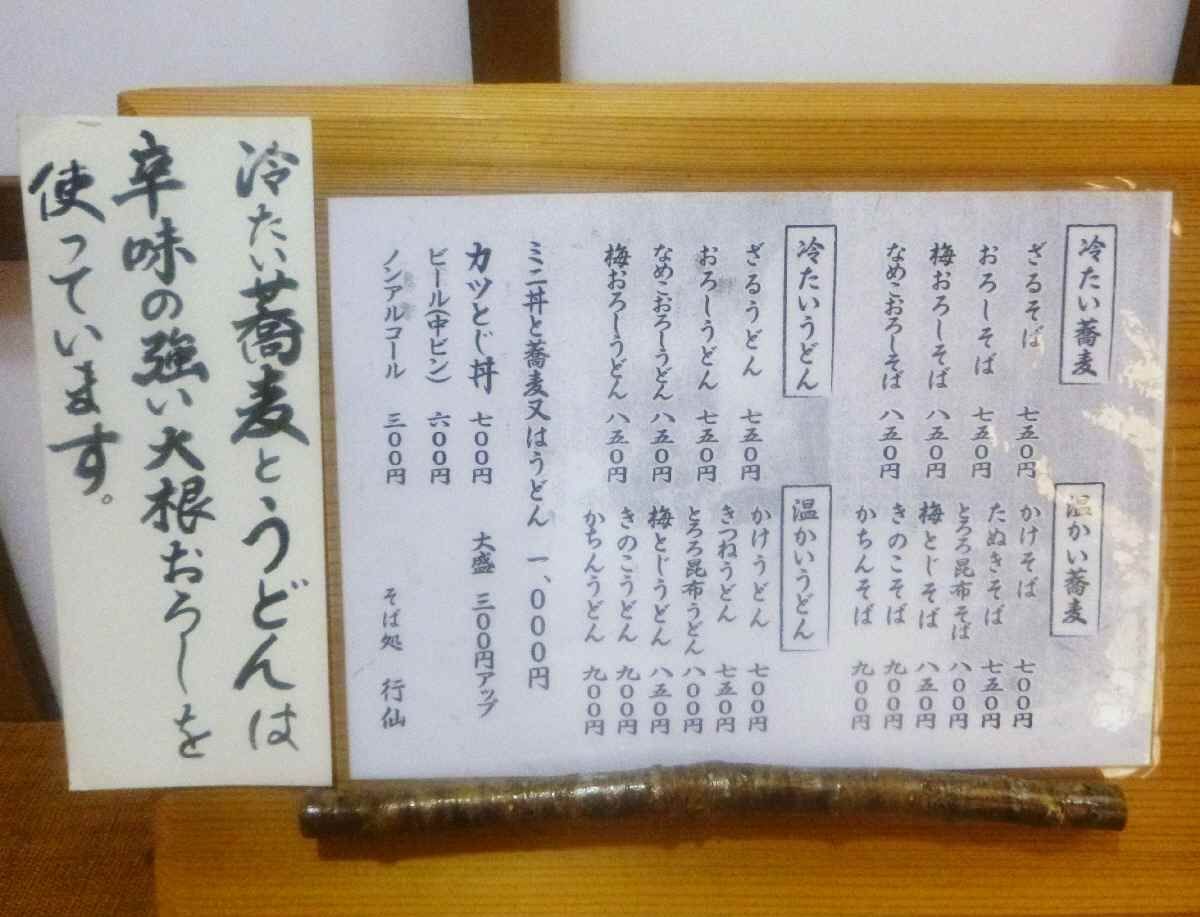 冷たい蕎麦
ざるそば 七五0円
おろしそば 七五0円
梅おろしそば 八五0円
なめこおろしそば 八五0円
温かい蕎麦
かけそば 七00円
たぬきそば 七五0円
とろろ昆布そば 八00円
梅とじそば 八五0円
きのこそば 九00円
かちんそば 九00円
冷たいうどん
ざるうどん 七五0円
おろしうどん 七五0円
なめこおろしうどん 八五0円
梅おろしうどん 八五0円
温かいうどん
かけうどん 七00円
きつねうどん 七五0円
とろろ昆布うどん 八00円
梅とじうどん 八五0円
きのこうどん 九00円
かちんうどん 九00円
ミニ丼と蕎麦又はうどん 一、000円
カツとじ丼 七00円 大盛 三00円アップ
ビール(中ビン) 六00円
ノンアルコール 三00円
そば処 行仙
冷たい蕎麦とうどんは
辛味の強い大根おろしを
使っています。